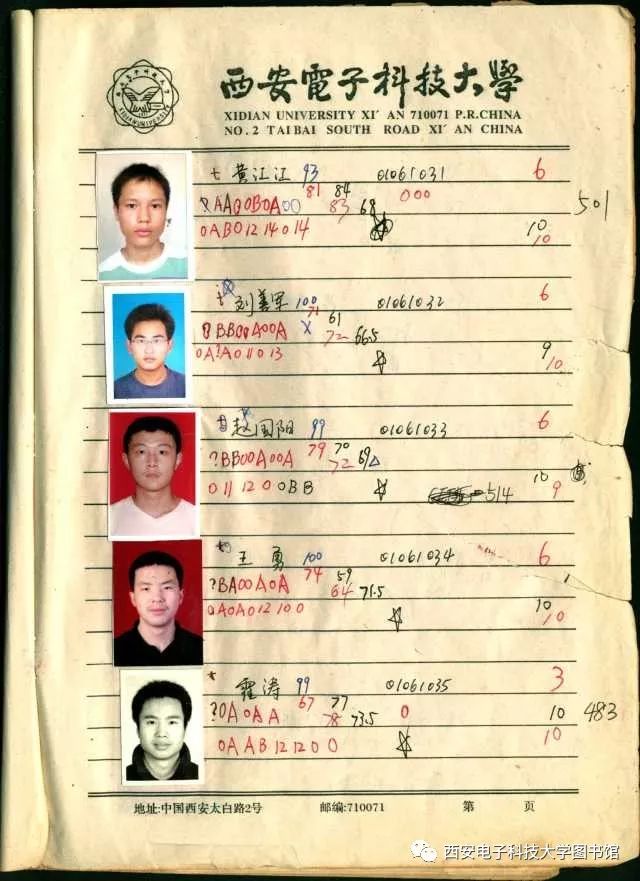 西安電子科技大學
XIDIAN UNIVERSITY XI' AN 710071 P.R.CHINA
NO.2 TAIBAI SOUTH ROAD XI' AN CHINA
黄江江 93 01061031 6
81 84 000
AA00B0A00 83 68 501
0AB01214014 10
10
刘善军 100 01061032 6
71 61
?BB00A00A X 72 66.5
9
10
赵国阳 99 01061033 6
79 70
?BB00A00A 72 69△
011200BB 514 10
9
王勇 100 01061034 6
74 59
?BA00A0A 64 71.5
0A0A012100 10
10
霍涛 99 01061035 3
67 77
?0A0AA 78 73.5 0 10 483
0AAB121200 10
地址:中国西安太白路2号 邮编:710071 第 页
西安电子科技大学图书馆